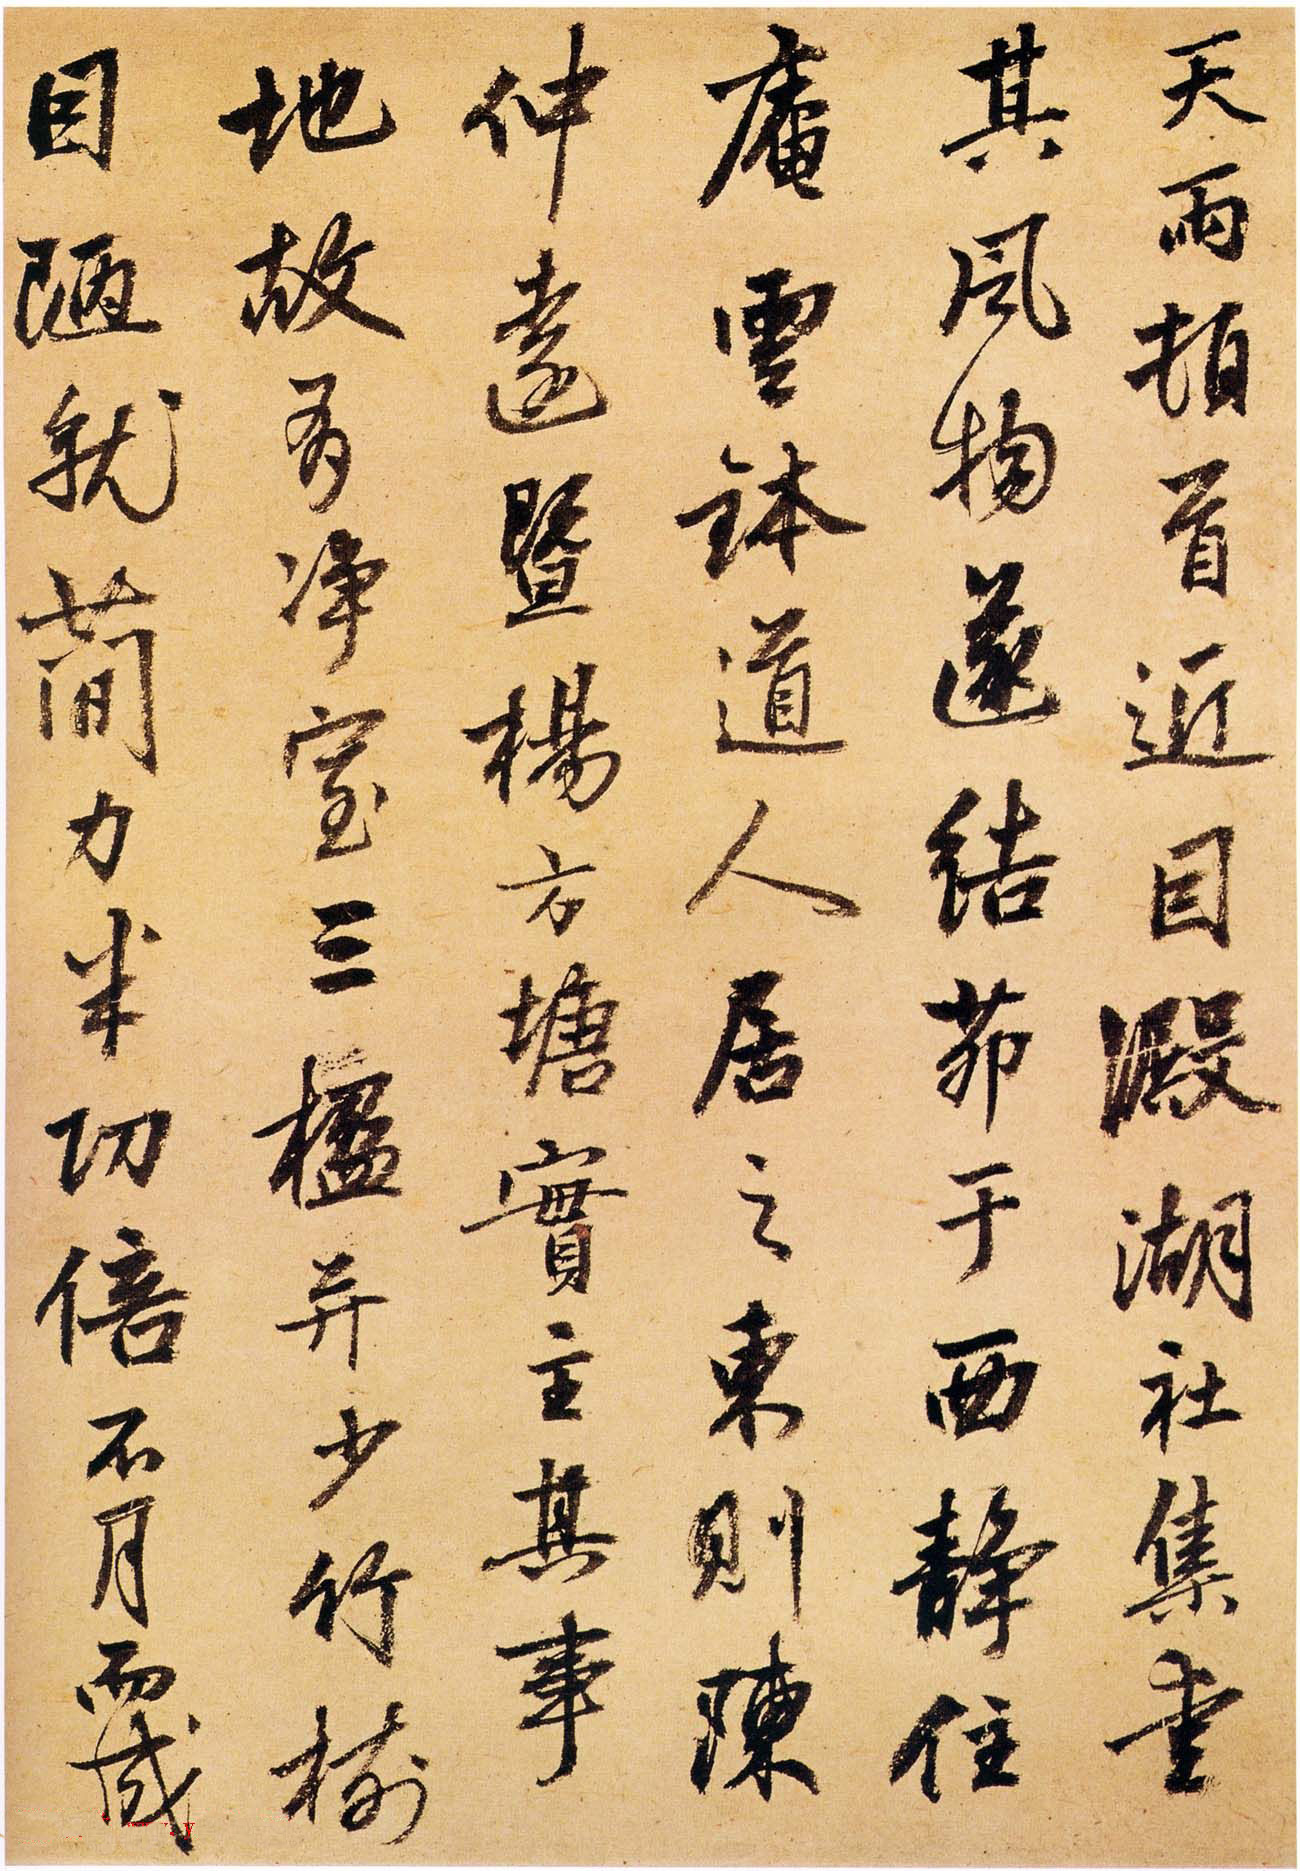 天雨頓首近因澱湖社集愛
其風物遂結茆于西靜住
庵雲鉢道人居之東則陳
仲遠暨楊方塘實主其事
地故有淨室三楹并少竹樹
因陋就簡力半功倍不月而成